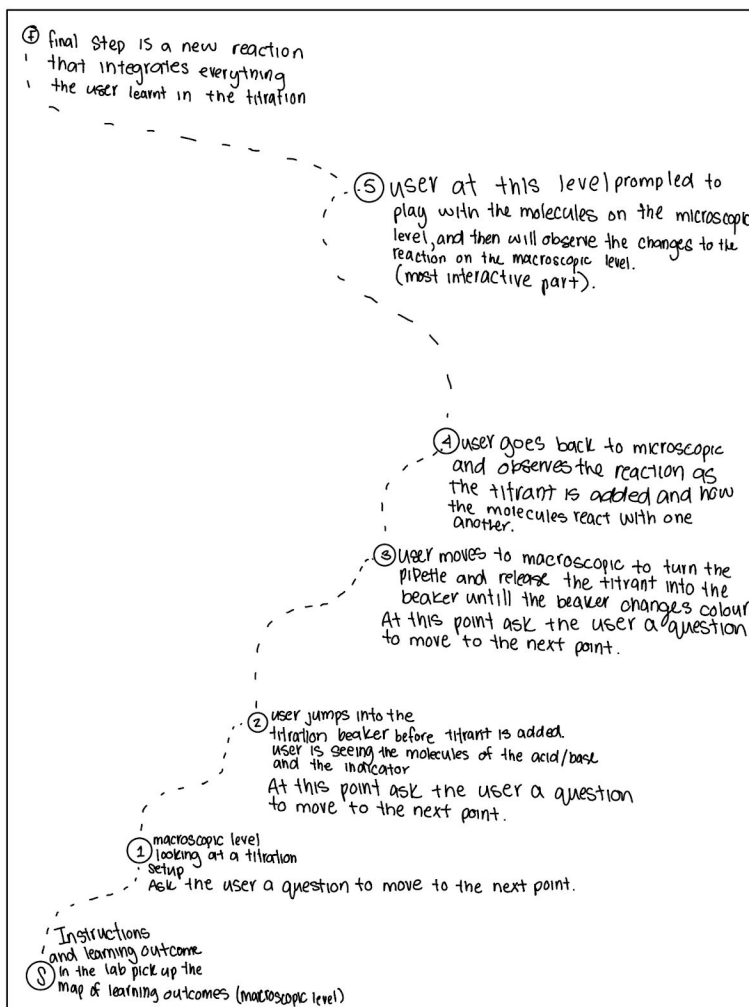 F final step is a new reaction
that integrates everything
the user learnt in the titration
5 user at this level prompled to
play with the molecules on the microscopic
level, and then will observe the changes to the
reaction on the macroscopic level.
(most interactive part).
4 user goes back to microscopic
and observes the reaction as
the titrant is added and how
the molecules react with one
another.
3 user moves to macroscopic to turn the
pipette and release the titrant into the
beaker untill the beaker changes colour
At this point ask the user a question
to move to the next point.
2 user jumps into the
titration beaker before titrant is added.
user is seeing the molecules of the acid/base
and the indicator
At this point ask the user a question
to move to the next point.
1 macroscopic level
looking at a titration
setup
Ask the user a question to move to the next point.
Instructions
and learning outcome
S in the lab pick up the
map of learning outcomes (macroscopic level)